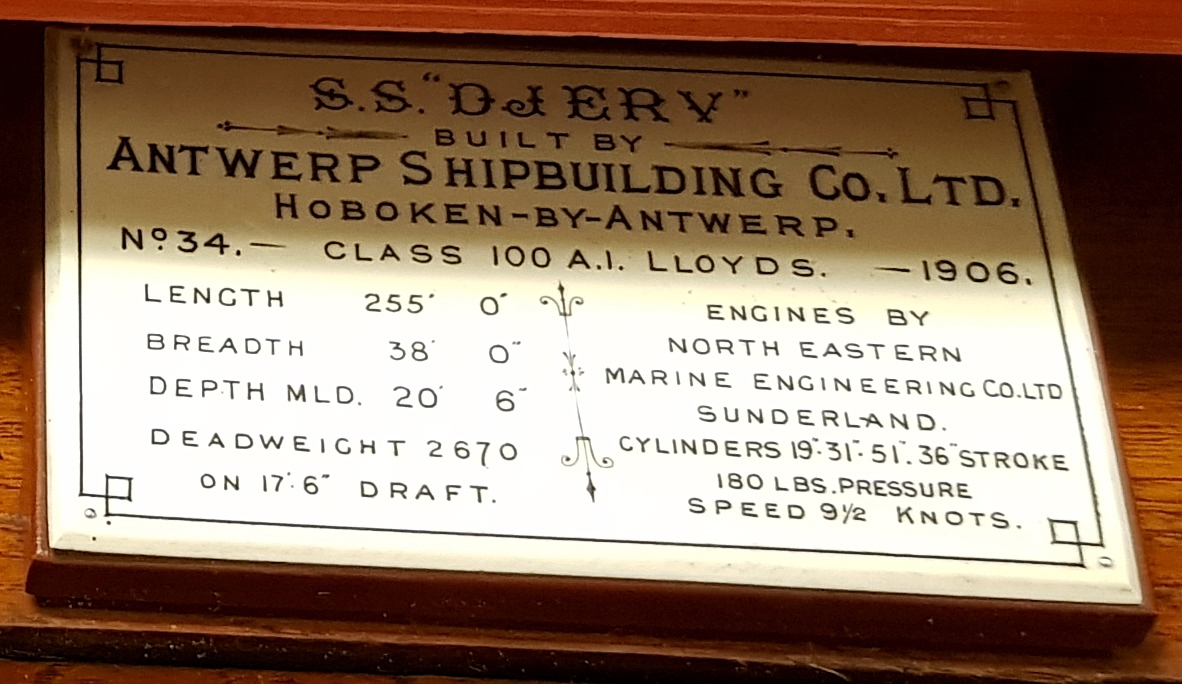 S.S. "DJERV"
BUILT BY
ANTWERP SHIPBUILDING CO. LTD.
HOBOKEN-BY-ANTWERP.
Nº 34.— CLASS 100 A.I. LLOYDS. —1906.
LENGTH 255' 0"
BREADTH 38' 0"
DEPTH MLD. 20' 6"
DEADWEIGHT 2670
ON 17'. 6" DRAFT.
ENGINES BY
NORTH EASTERN
MARINE ENGINEERING CO. LTD
SUNDERLAND.
CYLINDERS 19". 31". 51". 36" STROKE
180 LBS. PRESSURE
SPEED 9½ KNOTS.